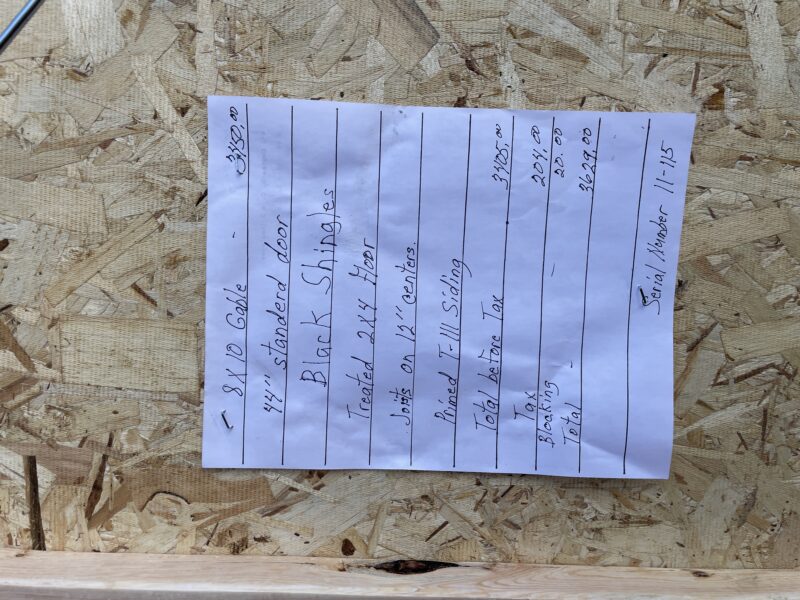 8 X 10 Gable -
44" standerd door
Black Shingles
Treated 2X4 floor
Joits on 12" centers.
Primed T-111 Siding
Total before Tax 3405.00
Tax 204.00
Bloaking - 20.00
Total - 3629.00
Serial Number 11-115